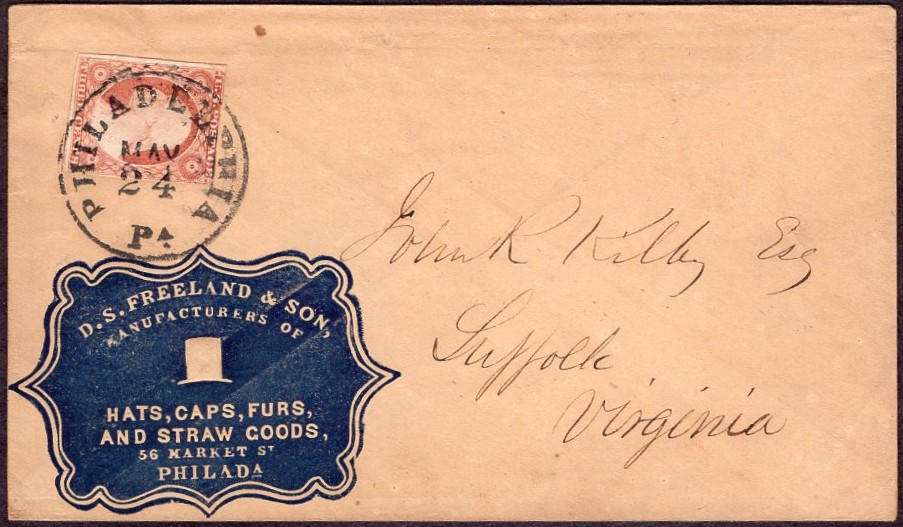 PHILADELPHIA
MAY
24
PA
D. S. FREELAND & SON,
MANUFACTURERS OF
HATS, CAPS, FURS,
AND STRAW GOODS,
56 MARKET ST
PHILADA
John R Kilby Esq
Suffolk
Virginia